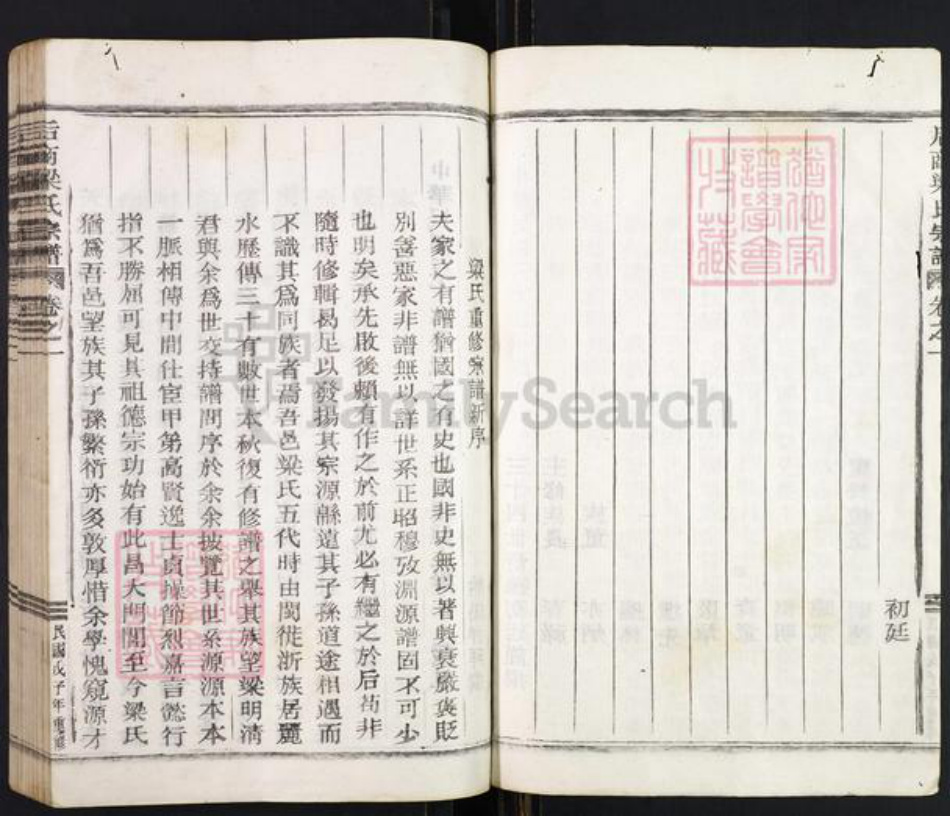 初廷
梁氏重修宗譜新序
夫家之有譜猶國之有史也國非史無以著興衰嚴褒貶
別善惡家非譜無以詳世系正昭穆攷淵源譜固不可少
也明矣承先啟後賴有作之於前尤必有繼之於后苟非
隨時修輯曷足以發揚其宗源緜遠其子孫道途相遇而
不識其爲同族者焉吾邑梁氏五代時由閩徙浙族居麗
水歷傳三十有數世本秋復有修譜之舉其族望梁明清
君與余爲世交持譜問序於余余披覽其世系源源本本
一脈相傳中間仕宦甲第高賢逸士貞操節烈嘉言懿行
指不勝屈可見其祖德宗功始有此昌大門閭至今梁氏
猶爲吾邑望族其子孫繁衍亦多敦厚惜余學愧窺源才
后商梁氏宗譜 卷之一
民國戊子年重修
FamilySearch